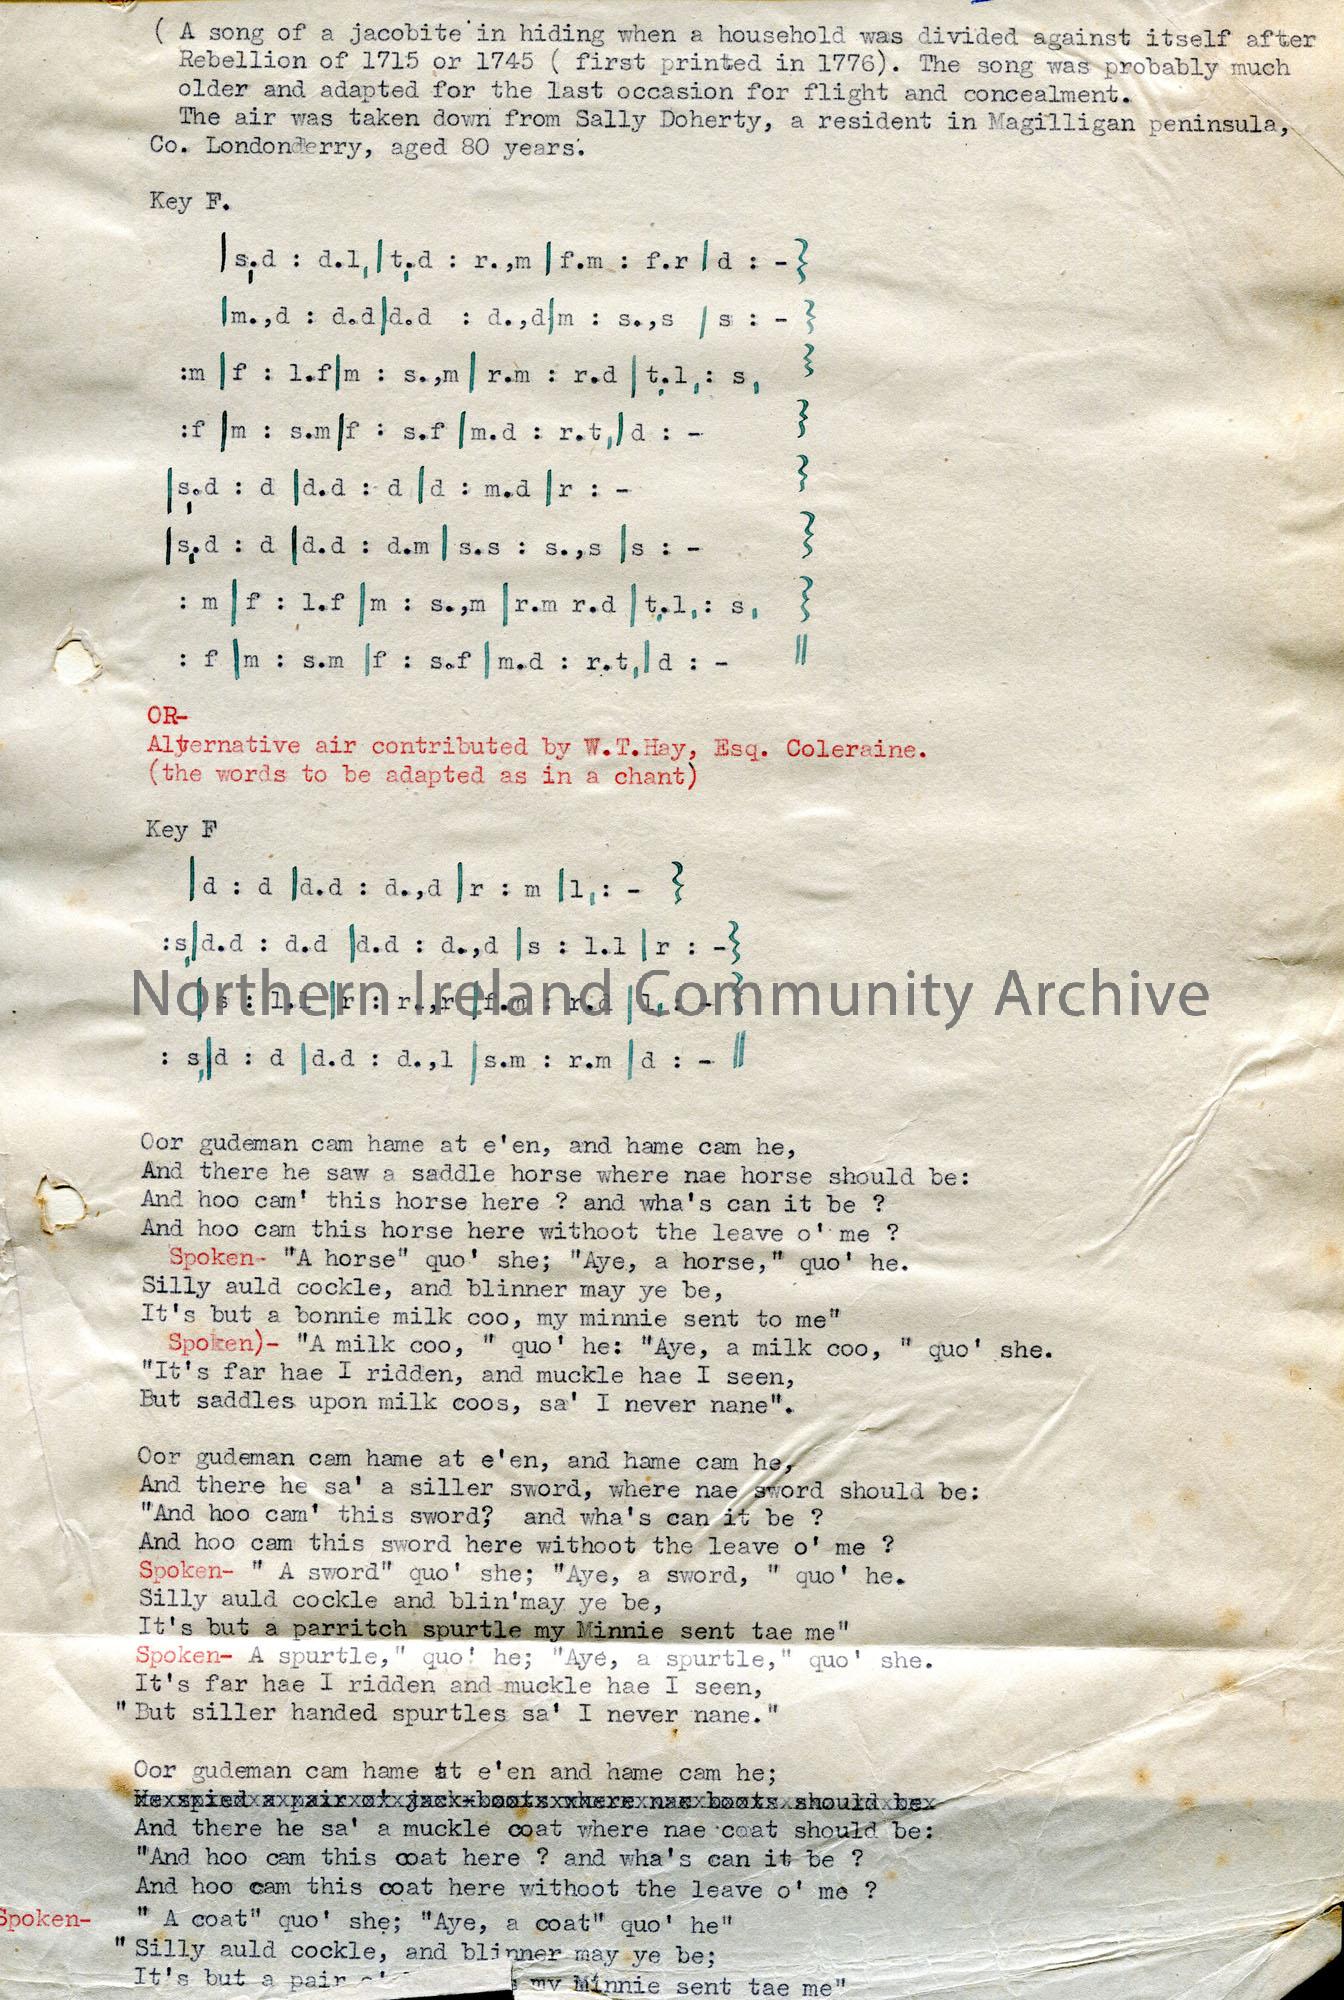 ( A song of a jacobite in hiding when a household was divided against itself after
Rebellion of 1715 or 1745 ( first printed in 1776). The song was probably much
older and adapted for the last occasion for flight and concealment.
The air was taken down from Sally Doherty, a resident in Magilligan peninsula,
Co. Londonderry, aged 80 years.
Key F.
|s,.d : d.l,|t,.d : r.,m |f.m : f.r |d : -}
|m.,d : d.d|d.d : d.,d|m : s.,s |s : -}
:m |f : l.f|m : s.,m |r.m : r.d |t,.l,: s, }
:f |m : s.m|f : s.f |m.d : r.t,|d : - }
|s,.d : d |d.d : d |d : m.d |r : - }
|s,.d : d |d.d : d.m |s.s : s.,s |s : - }
: m |f : l.f |m : s.,m |r.m r.d |t,.l,: s, }
: f |m : s.m |f : s.f |m.d : r.t,|d : - ||
OR-
Alternative air contributed by W.T.Hay, Esq. Coleraine.
(the words to be adapted as in a chant)
Key F
|d : d |d.d : d.,d |r : m |l,: - }
:s,|d.d : d.d |d.d : d.,d |s : l.l |r : -}
|s : l.l |r : r.,r |f.m : r.d |l,: -}
Northern Ireland Community Archive
: s,|d : d |d.d : d.,l |s.m : r.m |d : - ||
Oor gudeman cam hame at e'en, and hame cam he,
And there he saw a saddle horse where nae horse should be:
And hoo cam' this horse here ? and wha's can it be ?
And hoo cam this horse here withoot the leave o' me ?
Spoken- "A horse" quo' she; "Aye, a horse," quo' he.
Silly auld cockle, and blinner may ye be,
It's but a bonnie milk coo, my minnie sent to me"
Spoken)- "A milk coo, " quo' he: "Aye, a milk coo, " quo' she.
"It's far hae I ridden, and muckle hae I seen,
But saddles upon milk coos, sa' I never nane".
Oor gudeman cam hame at e'en, and hame cam he,
And there he sa' a siller sword, where nae sword should be:
"And hoo cam' this sword? and wha's can it be ?
And hoo cam this sword here withoot the leave o' me ?
Spoken- " A sword" quo' she; "Aye, a sword, " quo' he.
Silly auld cockle and blin'may ye be,
It's but a parritch spurtle my Minnie sent tae me"
Spoken- A spurtle," quo' he; "Aye, a spurtle," quo' she.
It's far hae I ridden and muckle hae I seen,
"But siller handed spurtles sa' I never nane."
Oor gudeman cam hame at e'en and hame cam he;
He spied a pair o' jack-boots where nae boots should be
And there he sa' a muckle coat where nae coat should be:
"And hoo cam this coat here ? and wha's can it be ?
And hoo cam this coat here withoot the leave o' me ?
Spoken- " A coat" quo' she; "Aye, a coat" quo' he"
"Silly auld cockle, and blinner may ye be;
It's but a pair o' my Minnie sent tae me"